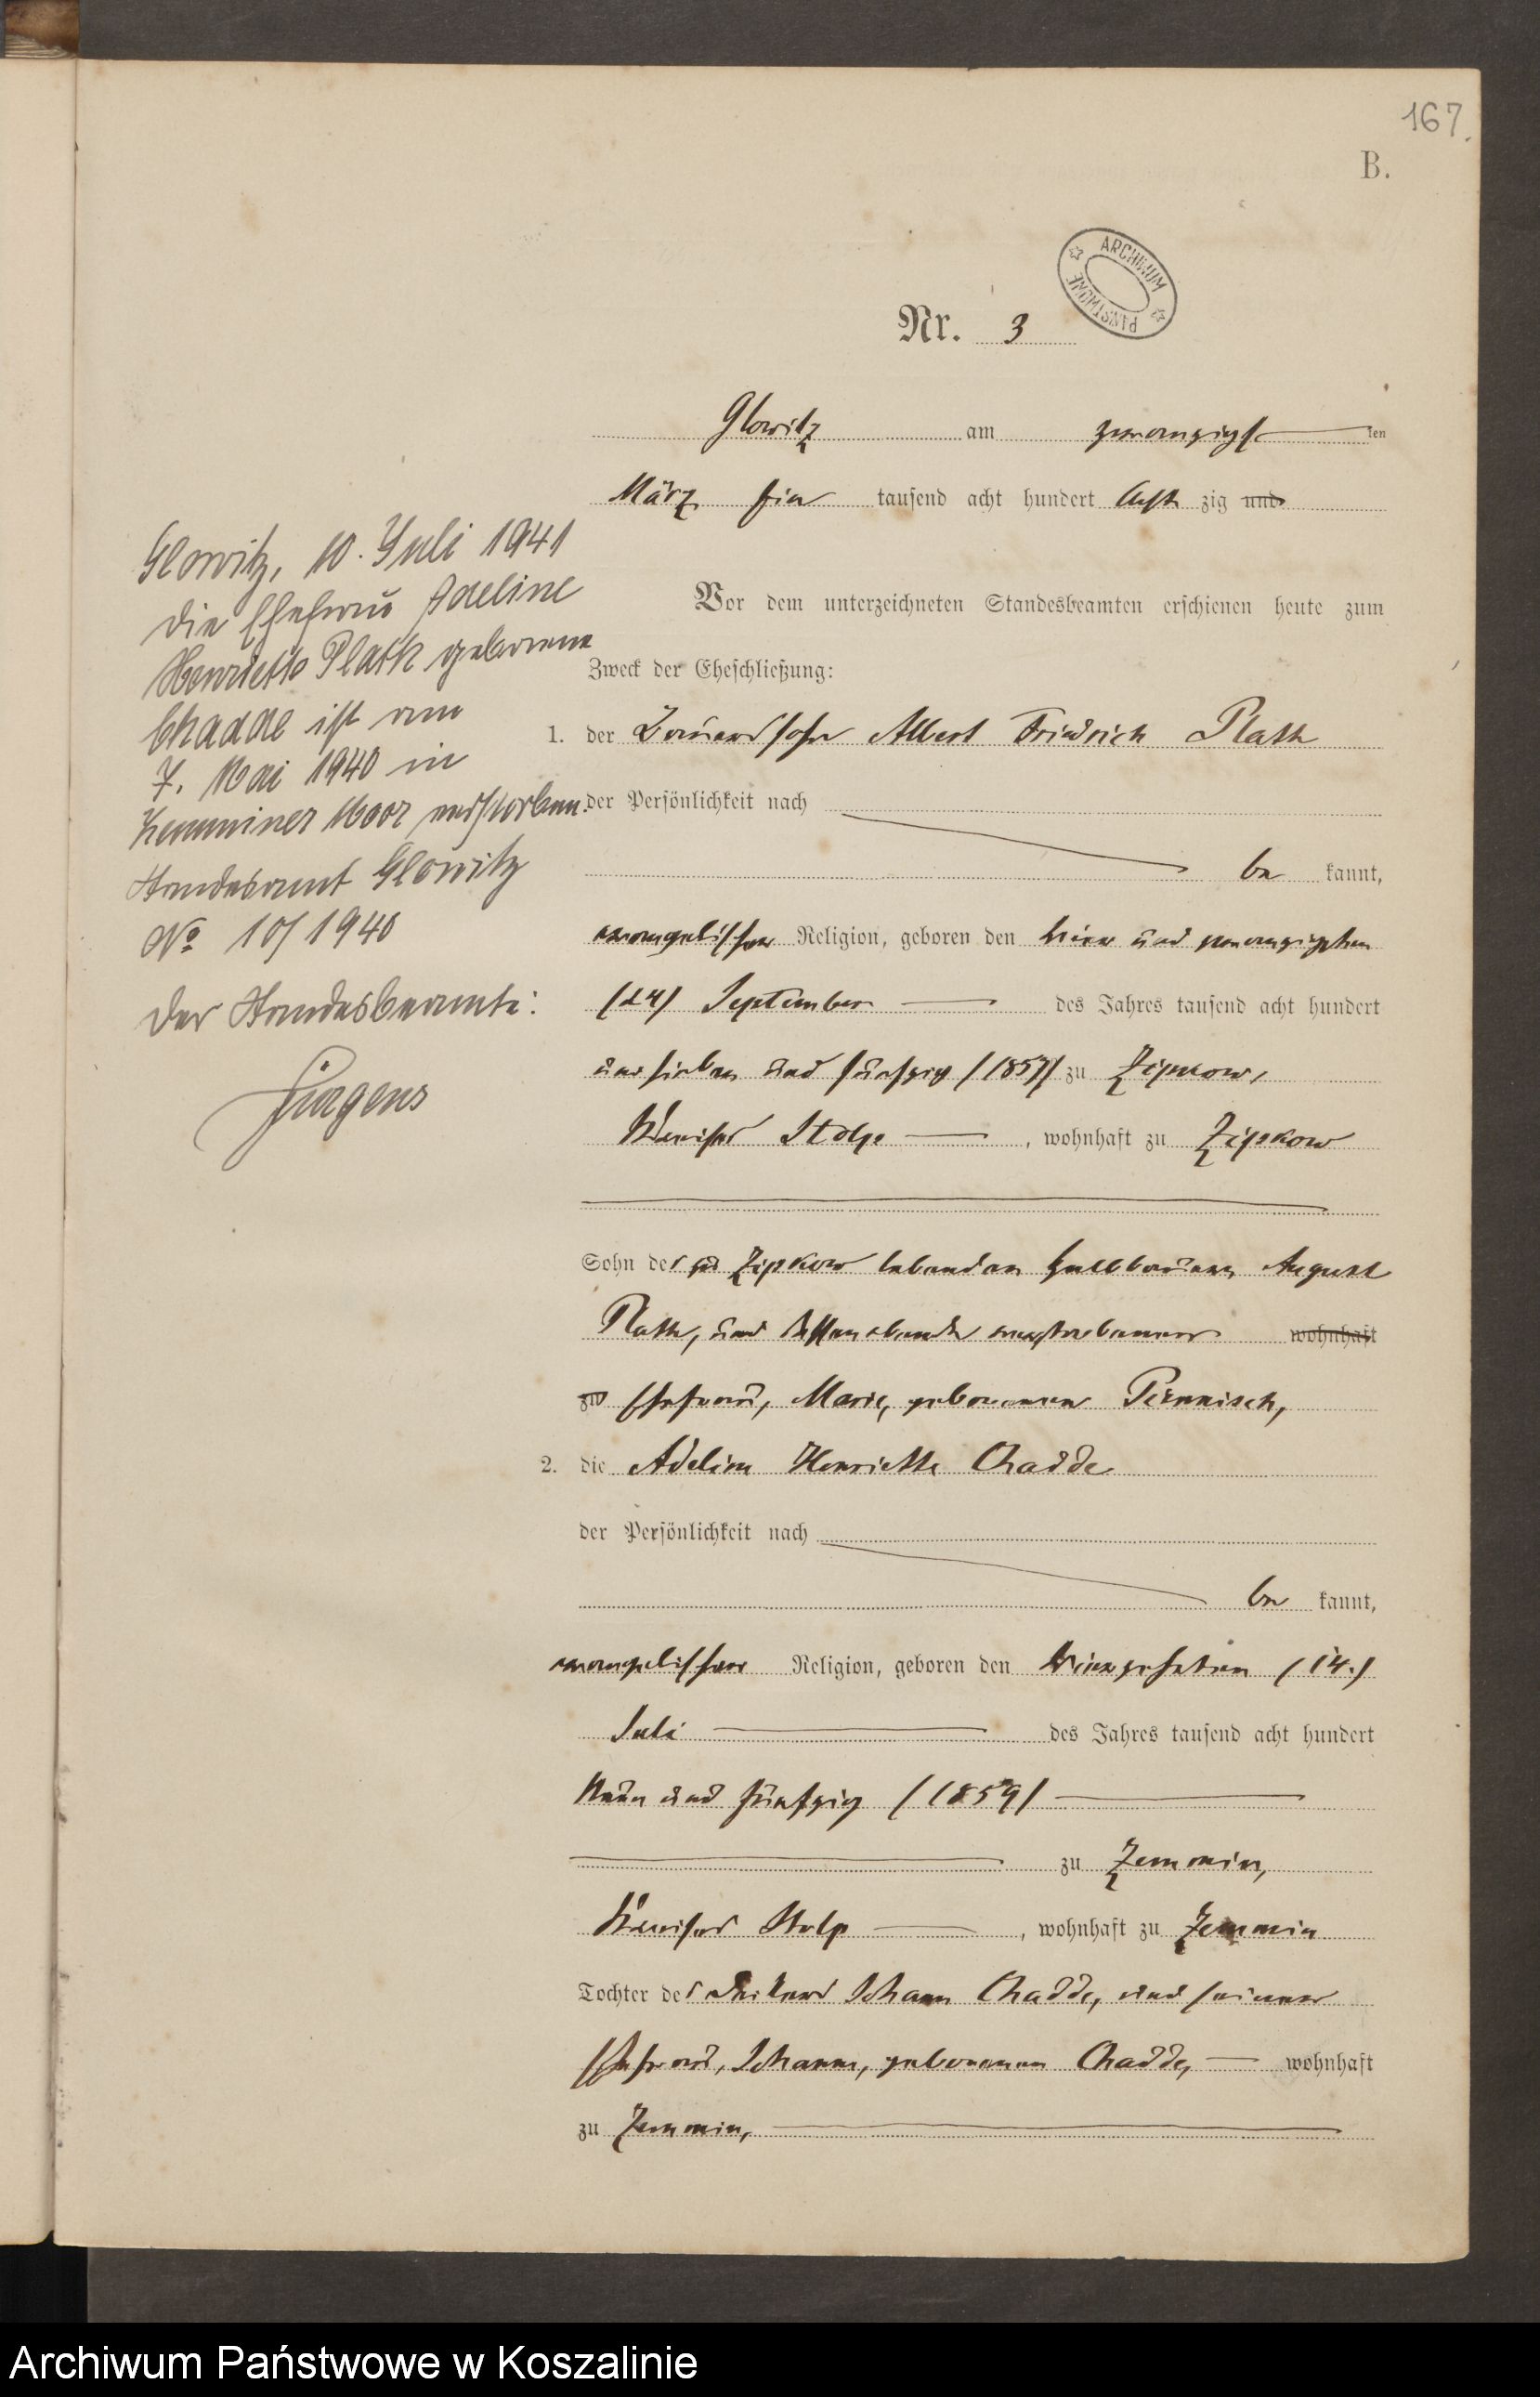 167.
B.
ARCHIWUM PAŃSTWOWE
Nr. 3
Glowitz am zwanzigsten
März ein tausend acht hundert acht zig und
Vor dem unterzeichneten Standesbeamten erschienen heute zum
Zweck der Eheschließung:
1. der Bauersohn Albert Friedrich Plath
der Persönlichkeit nach
be kannt,
evangelischer Religion, geboren den vier und zwanzigsten
(24) September des Jahres tausend acht hundert
sieben und fünfzig (1857) zu Zipkow,
Kreises Stolp, wohnhaft zu Zipkow
Sohn des zu Zipkow lebenden Halbbauern August
Plath, und dessen verstorbenen wohnhaft
zu Ehefrau, Marie, geborenen
2. die Adeline Henriette Chadde
der Persönlichkeit nach
be kannt,
evangelischer Religion, geboren den vierzehnten (14.)
Juli des Jahres tausend acht hundert
neun und fünfzig (1859)
zu Zemmin,
Kreises Stolp, wohnhaft zu Zemmin
Tochter des Johann Chadde, und seiner
Ehefrau, Johanne, geborenen Chadde, wohnhaft
zu Zemmin,
Glowitz, 10. Juli 1941
Die Ehefrau Adeline
Henriette Plath geborene
Chadde ist am
7. Mai 1940 in
Zemminer Moor verstorben.
Standesamt Glowitz
No 10/1940
Der Standesbeamte:
Jürgens
Archiwum Państwowe w Koszalinie